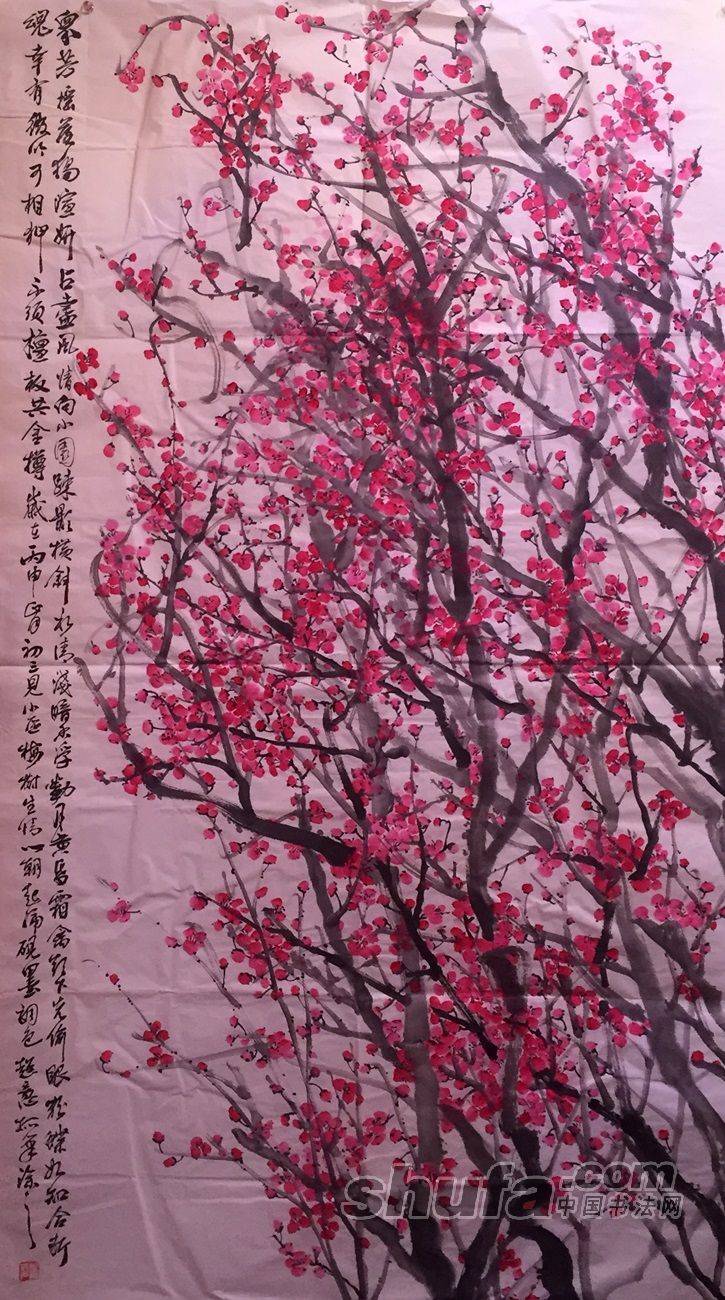 眾芳搖落獨暄妍占盡風情向小園疎影橫斜水清淺暗香浮動月黃昏霜禽欲下先偷眼粉蝶如知合断
魂幸有微吟可相狎不須檀板共金樽歲在丙申正月初三見小区梅樹生情心潮起涌硯墨調色
shufa.com
中国书法网